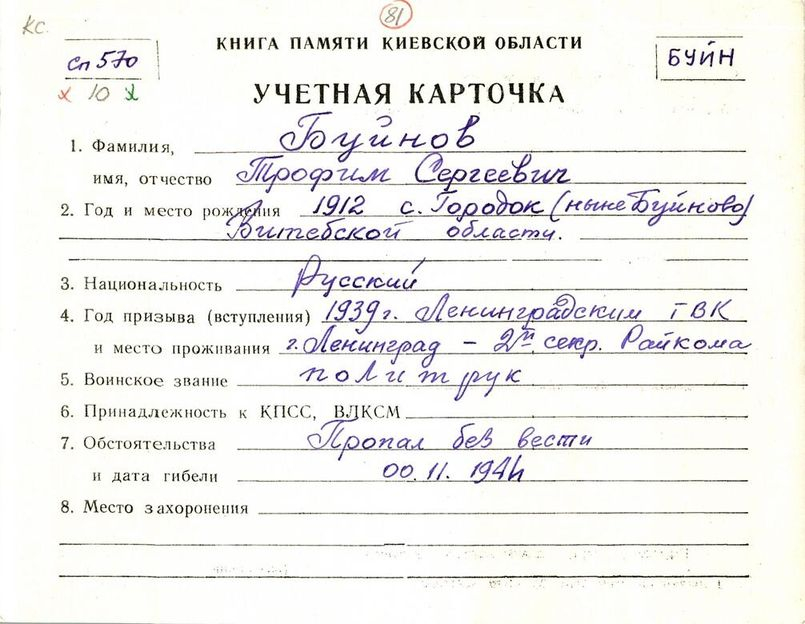 КС.
81
КНИГА ПАМЯТИ КИЕВСКОЙ ОБЛАСТИ
Сп 570
БУЙН
х 10 х
УЧЕТНАЯ КАРТОЧКА
1. Фамилия, Буйнов
имя, отчество Трофим Сергеевич
2. Год и место рождения 1912 с. Городок (ныне Буйново)
Витебской области.
3. Национальность Русский
4. Год призыва (вступления) 1939 г. Ленинградским ГВК
и место проживания г. Ленинград – 2й секр. Райкома
5. Воинское звание политрук
6. Принадлежность к КПСС, ВЛКСМ
7. Обстоятельства Пропал без вести
и дата гибели 00. 11. 1944
8. Место захоронения